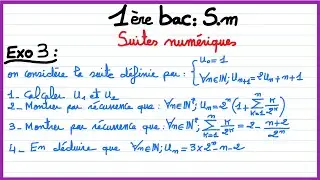 1ère bac: S.m
Suites numériques
Exo 3:
on considère la suite définie par: { U₀ = 1
∀n∈ℕ; Uₙ₊₁ = 2Uₙ + n + 1
1 - Calculer U₁ et U₂
2 - Montrer par récurrence que: ∀n∈ℕ*; Uₙ = 2ⁿ(1 + ∑ₖ₌₁ⁿ k/2ᵏ)
3 - Montrer par récurrence que: ∀n∈ℕ*; ∑ₖ₌₁ⁿ k/2ᵏ = 2 - (n+2)/2ⁿ
4 - En déduire que ∀n∈ℕ; Uₙ = 3×2ⁿ - n - 2